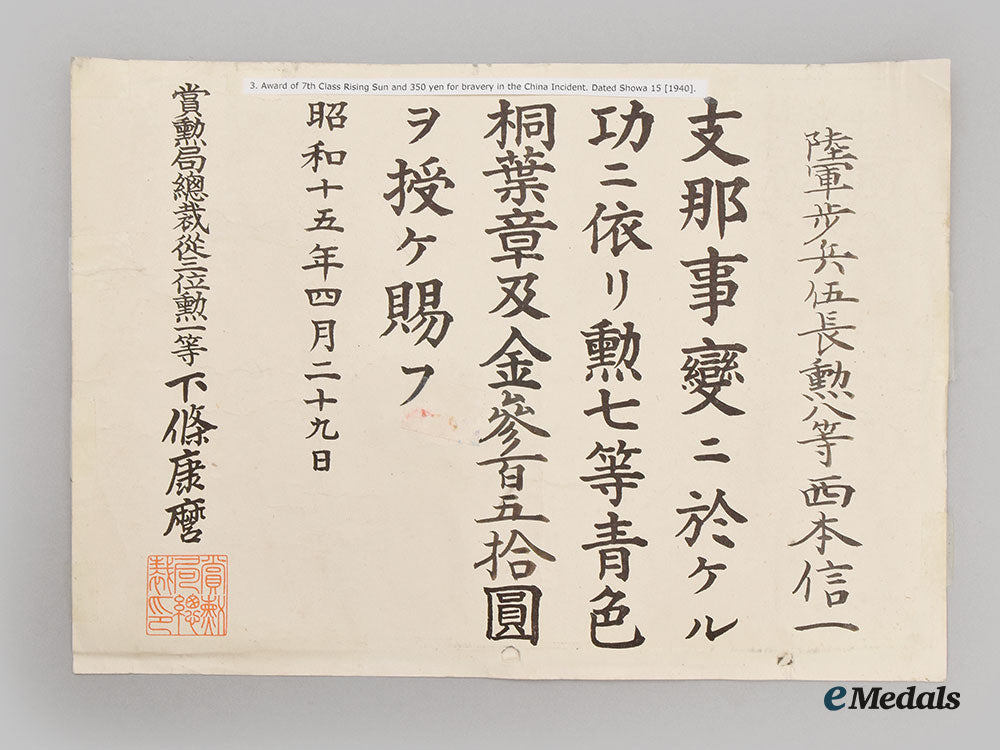 3. Award of 7th Class Rising Sun and 350 yen for bravery in the China Incident. Dated Showa 15 [1940].
陸軍步兵伍長勲八等西本信一
支那事變ニ於ケル
功ニ依リ勲七等青色
桐葉章及金參百五拾圓
ヲ授ケ賜フ
昭和十五年四月二十九日
賞勲局總裁從三位勲一等下條康麿
賞勲
局總
裁印
eMedals